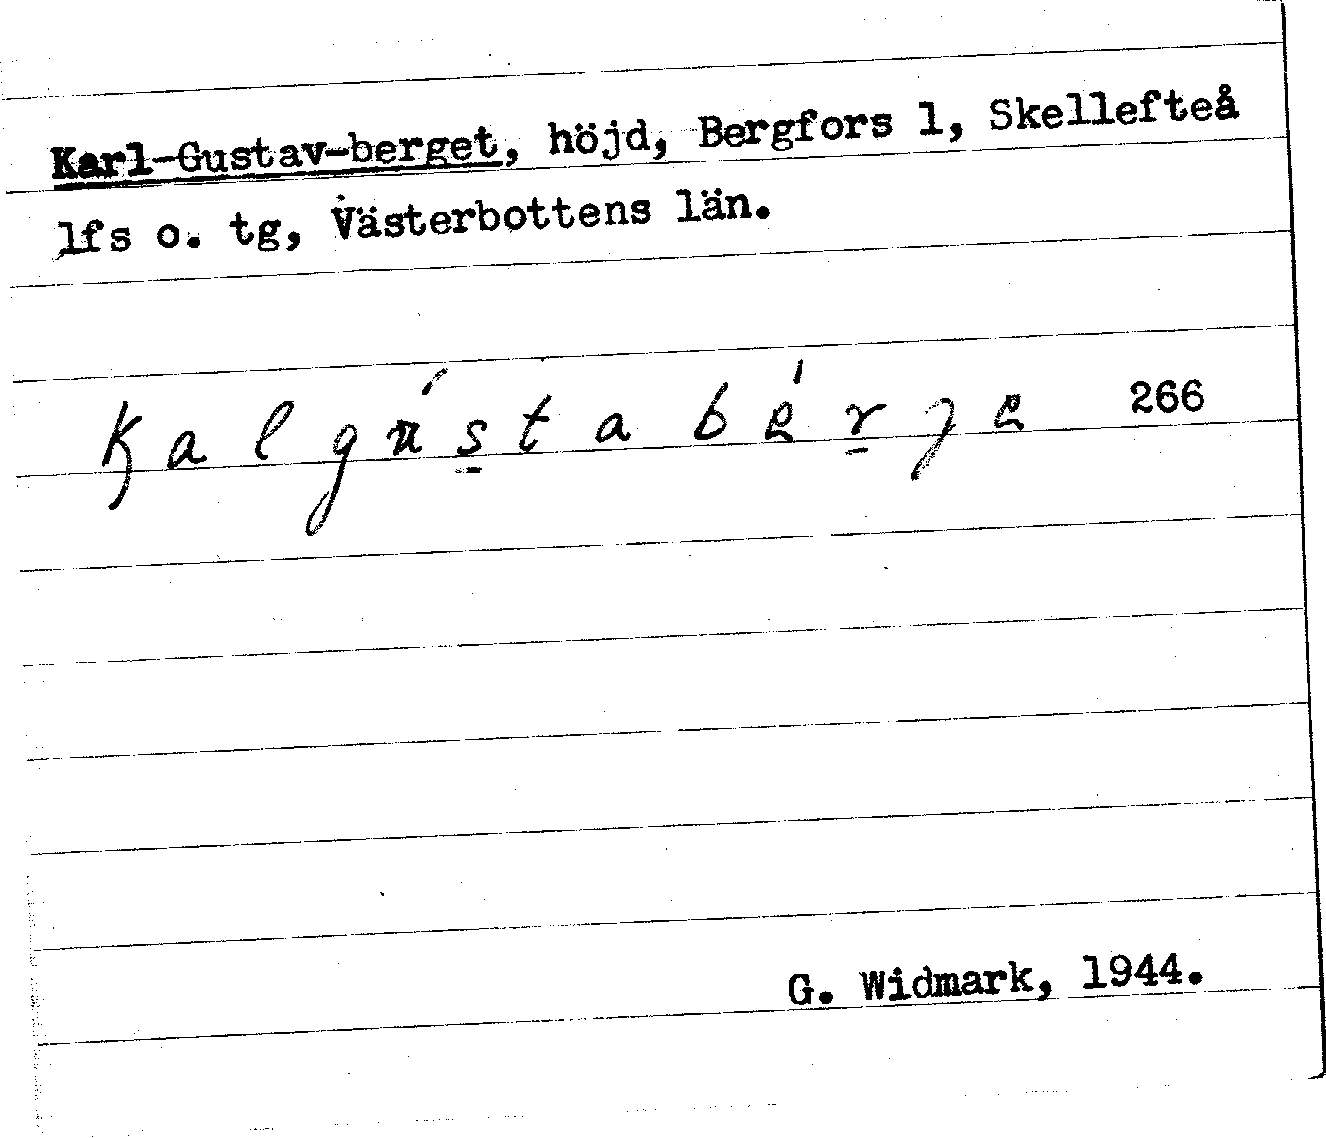 Karl-Gustav-berget, höjd, Bergfors 1, Skellefteå
lfs o. tg, Västerbottens län.
Kalgústabérje 266
G. Widmark, 1944.